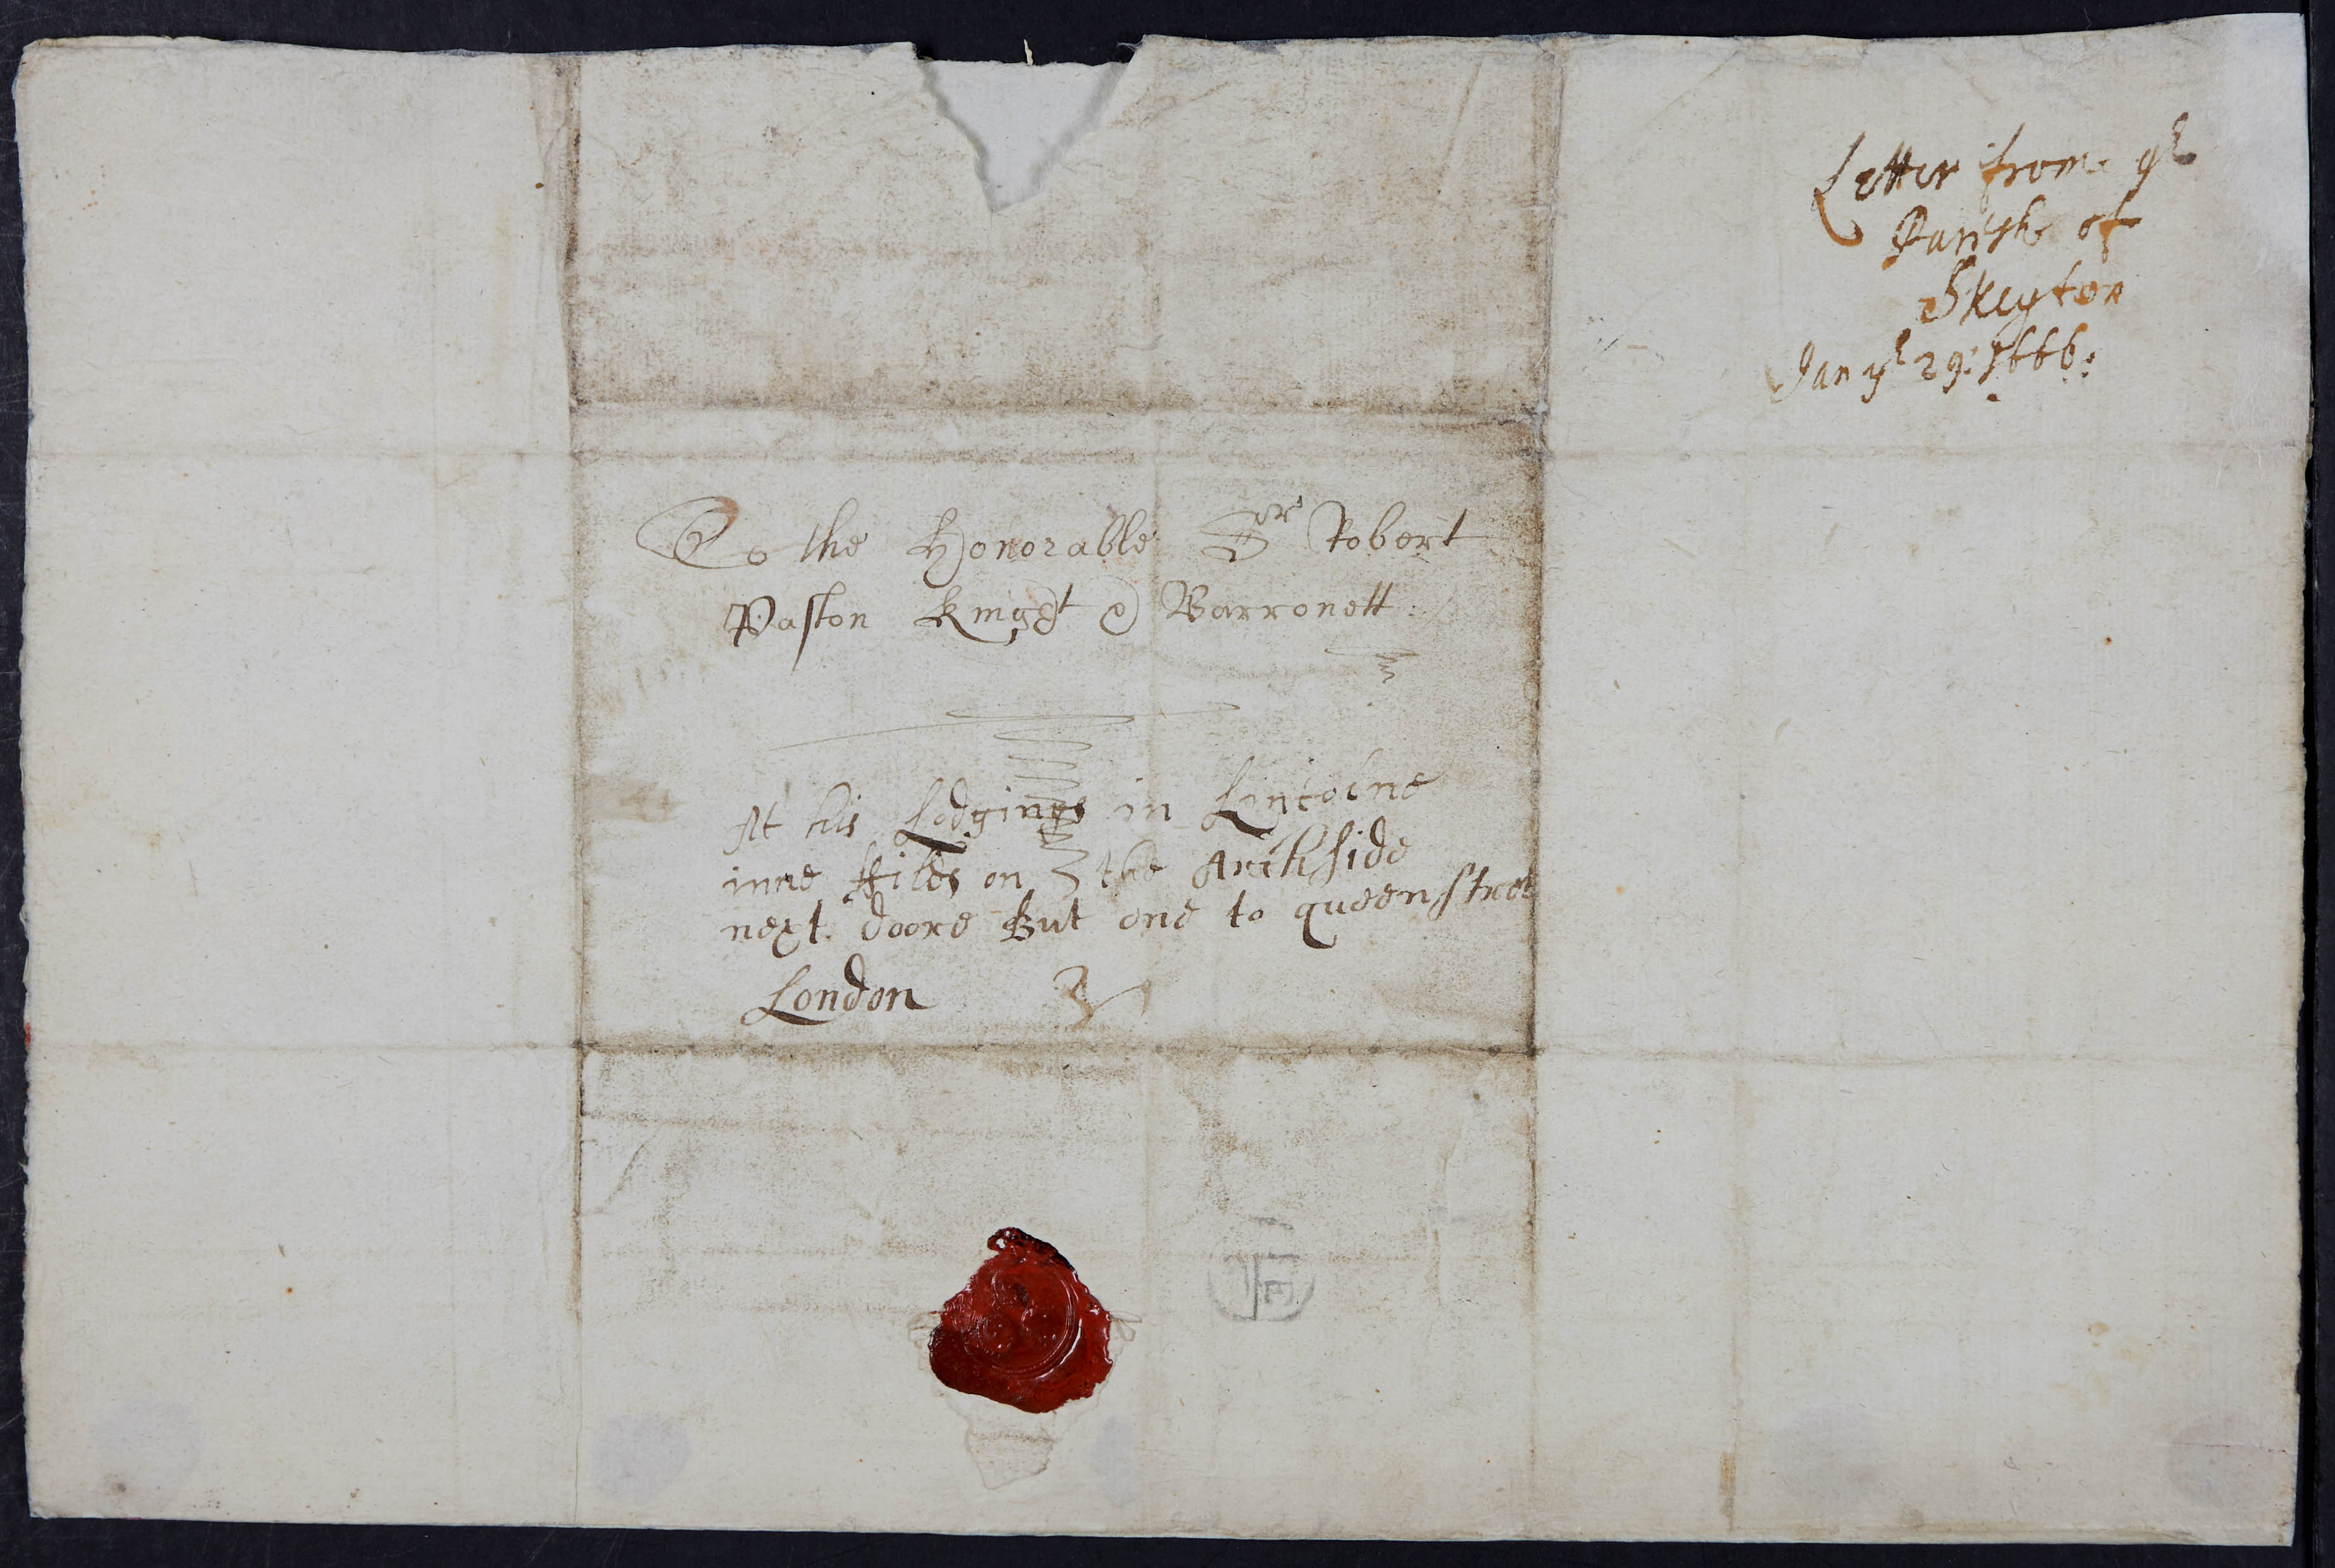 Letter from ye
Parish of
Skeyton
Jan ye 29: 1666:
To the Honorable Sr Robert
Paston Knight & Barronett
At his Lodginges in Lincolne
inne Filds on the Archside
next doore But one to queenstreet
London